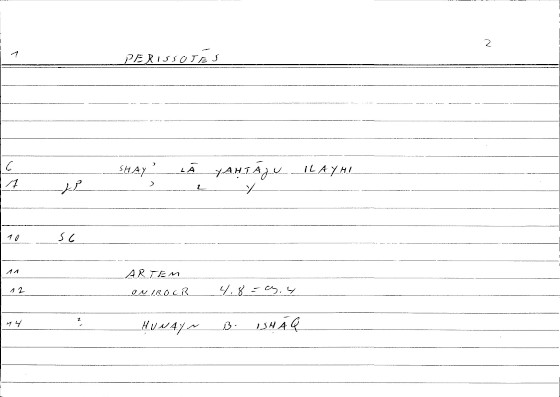 2
1 PERISSOTĒS
6 SHAYʾ LĀ YAḤTĀJU ILAYHI
7 LP ʾ L Y
10 SG
11 ARTEM
12 ONIROCR 4.8 =
14 2 ḤUNAYN B. ISḤĀQ